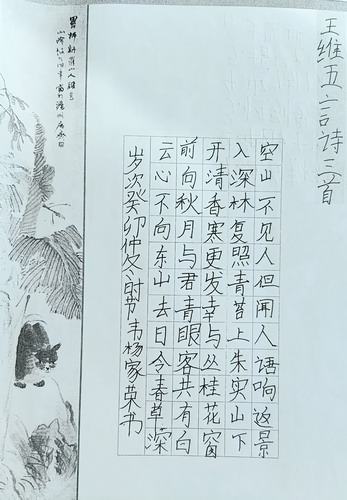 王维五言诗三首
空山不见人但闻人语响返景
入深林复照青苔上朱实山下
开清香寒更发幸与丛桂花窗
前向秋月与君青眼客共有白
云心不向东山去日令春草深
岁次癸卯仲冬时节韦杨家荣书